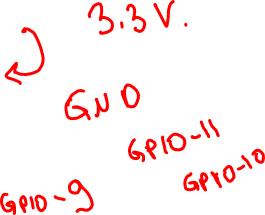 3.3V.
GND
GPIO-11
GPIO-10
GPIO-9